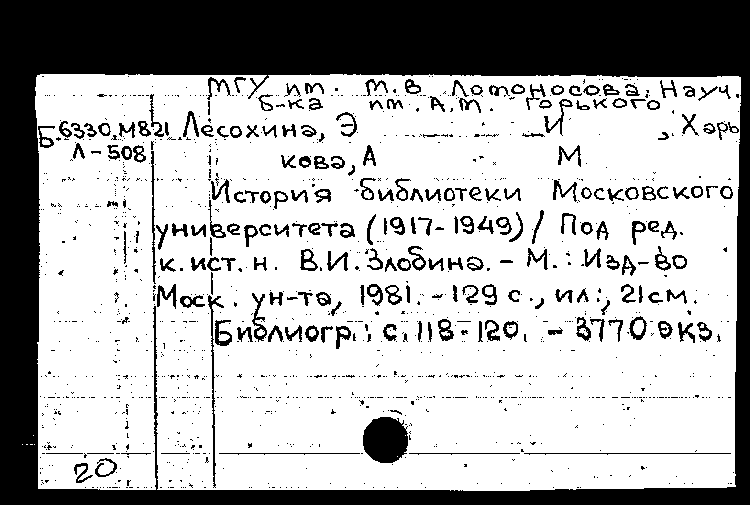 МГУ им. М.В Ломоносова. Науч.
б-ка им. А.М. Горького
Б.6330.М821 Лесохина, Э И , Харь
Л-508 кова, А М
История библиотеки Московского
университета (1917-1949) / Под ред.
к. ист. н. В.И. Злобина. - М.: Изд-во
Моск. ун-та, 1981. - 129 с., ил:, 21 см.
Библиогр.: с. 118-120. - 3770 экз.
20